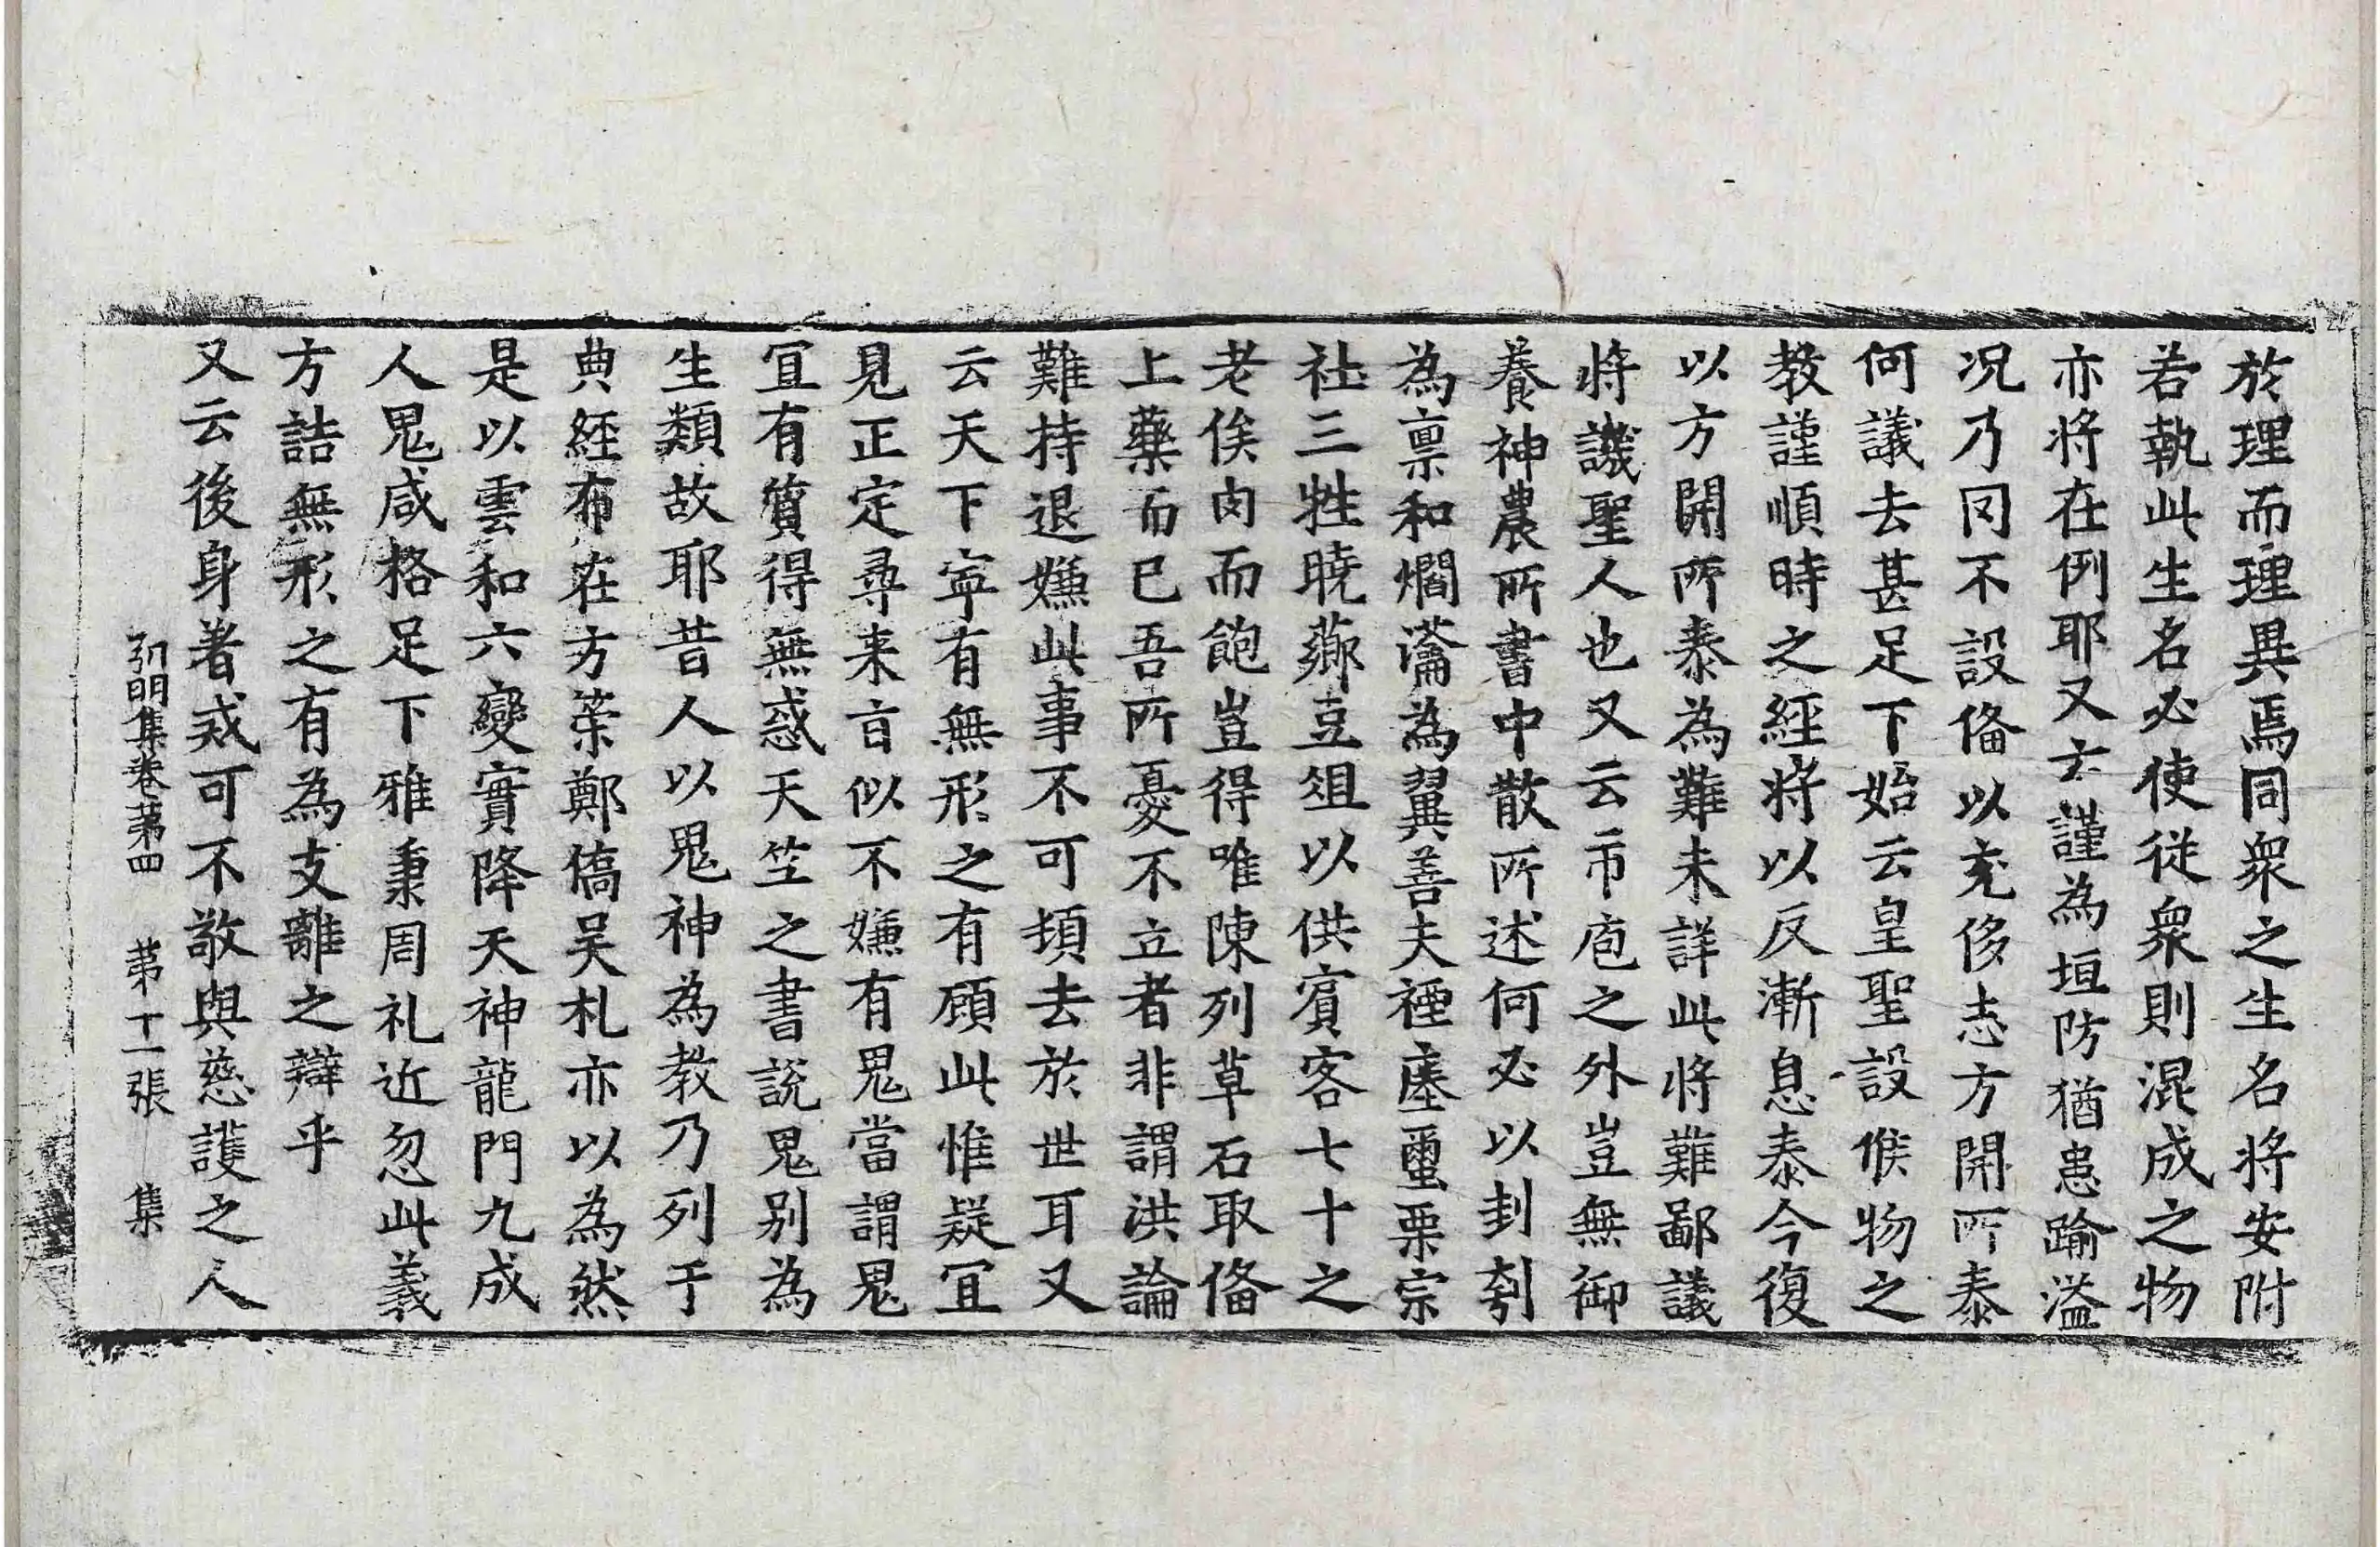 於理而理異焉同衆之生名將安附
若執此生名必使從衆則混成之物
亦將在例耶又云謹為垣防猶患踰溢
况乃罔不設俻以充侈志方開所泰
何議去甚足下始云皇聖設候物之
教謹順時之經將以反漸息泰今復
以方開所泰為難未詳此將難鄙議
將譏聖人也又云市庖之外豈無御
養神農所書中散所述何必以刲刳
為禀和爓瀹為翼善夫禋瘞璽栗宗
社三牲曉薌豆俎以供賓客七十之
老俟肉而飽豈得唯陳列草石取俻
上藥而已吾所憂不立者非謂洪論
難持退嫌此事不可頓去於世耳又
云天下寧有無形之有顧此惟疑宜
見正定尋来旨似不嫌有鬼當謂鬼
宜有質得無惑天竺之書說鬼别為
生類故耶昔人以鬼神為教乃列于
典經布在方筞鄭僑吴札亦以為然
是以雲和六變實降天神龍門九成
人鬼咸格足下雅秉周礼近忽此義
方詰無形之有為支離之辯乎
又云後身著戒可不敬與慈護之人
弘明集卷第四　第十一張　集